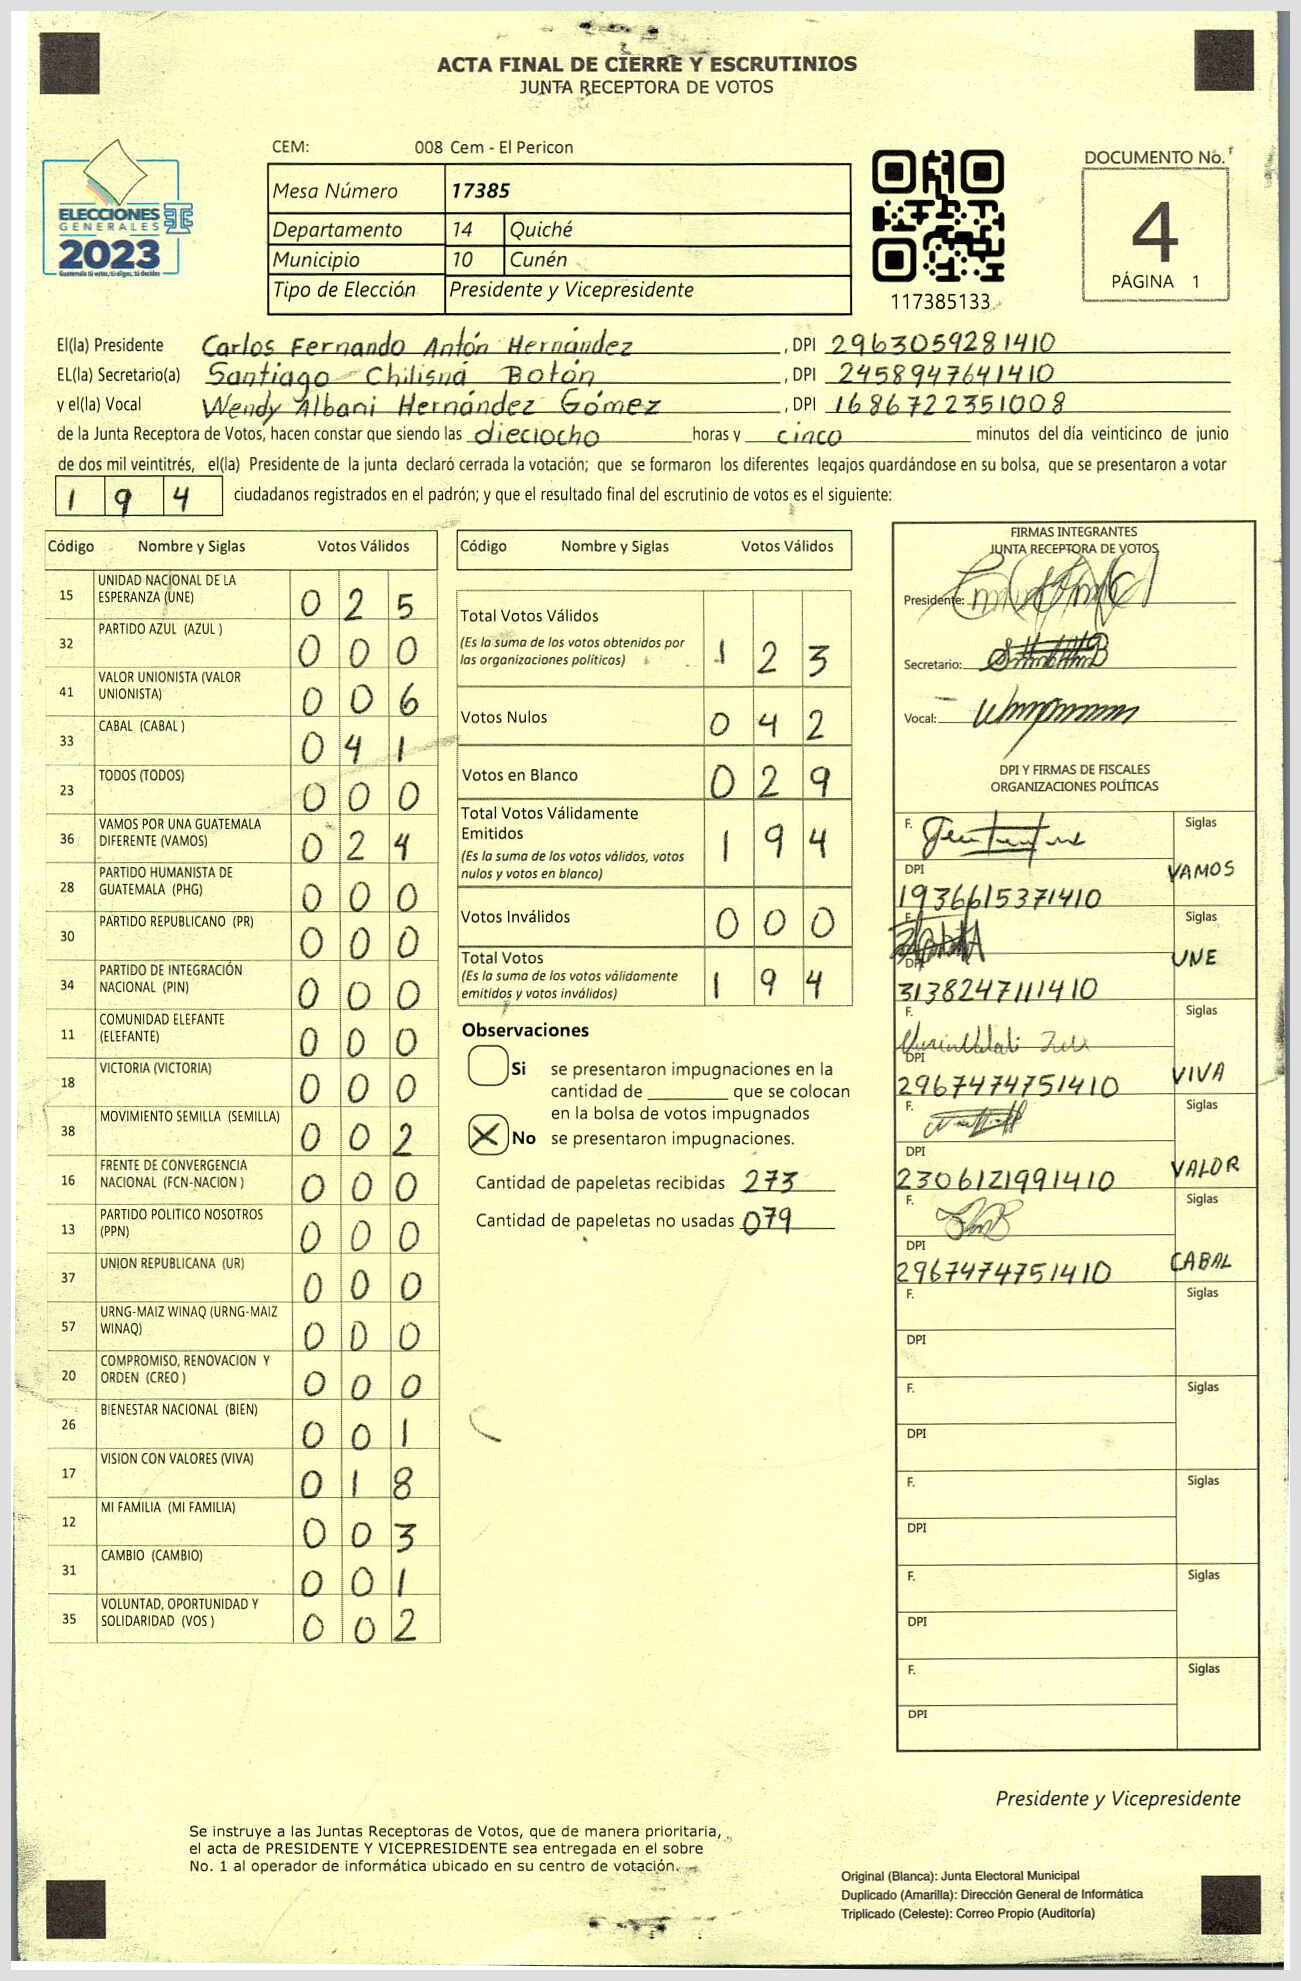 ACTA FINAL DE CIERRE Y ESCRUTINIOS
JUNTA RECEPTORA DE VOTOS
ELECCIONES
GENERALES
2023
Guatemala tú votas, tú eliges, tú decides
CEM: 008 Cem - El Pericon
Mesa Número 17385
Departamento 14 Quiché
Municipio 10 Cunén
Tipo de Elección Presidente y Vicepresidente
117385133
DOCUMENTO No.
4
PÁGINA 1
El(la) Presidente Carlos Fernando Antón Hernández, DPI 2963059281410
EL(la) Secretario(a) Santiago Chilisná Botón, DPI 2458947641410
y el(la) Vocal Wendy Albani Hernández Gómez, DPI 1686722351008
de la Junta Receptora de Votos, hacen constar que siendo las dieciocho horas y cinco minutos del día veinticinco de junio
de dos mil veintitrés, el(la) Presidente de la junta declaró cerrada la votación; que se formaron los diferentes legajos quardándose en su bolsa, que se presentaron a votar
194 ciudadanos registrados en el padrón; y que el resultado final del escrutinio de votos es el siguiente:
Código Nombre y Siglas Votos Válidos
15 UNIDAD NACIONAL DE LA ESPERANZA (UNE) 0 2 5
32 PARTIDO AZUL (AZUL ) 0 0 0
41 VALOR UNIONISTA (VALOR UNIONISTA) 0 0 6
33 CABAL (CABAL ) 0 4 1
23 TODOS (TODOS) 0 0 0
36 VAMOS POR UNA GUATEMALA DIFERENTE (VAMOS) 0 2 4
28 PARTIDO HUMANISTA DE GUATEMALA (PHG) 0 0 0
30 PARTIDO REPUBLICANO (PR) 0 0 0
34 PARTIDO DE INTEGRACIÓN NACIONAL (PIN) 0 0 0
11 COMUNIDAD ELEFANTE (ELEFANTE) 0 0 0
18 VICTORIA (VICTORIA) 0 0 0
38 MOVIMIENTO SEMILLA (SEMILLA) 0 0 2
16 FRENTE DE CONVERGENCIA NACIONAL (FCN-NACION ) 0 0 0
13 PARTIDO POLITICO NOSOTROS (PPN) 0 0 0
37 UNION REPUBLICANA (UR) 0 0 0
57 URNG-MAIZ WINAQ (URNG-MAIZ WINAQ) 0 0 0
20 COMPROMISO, RENOVACION Y ORDEN (CREO ) 0 0 0
26 BIENESTAR NACIONAL (BIEN) 0 0 1
17 VISION CON VALORES (VIVA) 0 1 8
12 MI FAMILIA (MI FAMILIA) 0 0 3
31 CAMBIO (CAMBIO) 0 0 1
35 VOLUNTAD, OPORTUNIDAD Y SOLIDARIDAD (VOS ) 0 0 2
Código Nombre y Siglas Votos Válidos
Total Votos Válidos 1 2 3
(Es la suma de los votos obtenidos por
las organizaciones políticos)
Votos Nulos 0 4 2
Votos en Blanco 0 2 9
Total Votos Válidamente
Emitidos 1 9 4
(Es la suma de los votos válidos, votos
nulos y votos en blanco)
Votos Inválidos 0 0 0
Total Votos 1 9 4
(Es la suma de los votos válidamente
emitidos y votos inválidos)
Observaciones
Si se presentaron impugnaciones en la
cantidad de ________ que se colocan
en la bolsa de votos impugnados
X No se presentaron impugnaciones.
Cantidad de papeletas recibidas 273
Cantidad de papeletas no usadas 079
FIRMAS INTEGRANTES
JUNTA RECEPTORA DE VOTOS
Presidente:
Secretario:
Vocal:
DPI Y FIRMAS DE FISCALES
ORGANIZACIONES POLÍTICAS
F. Siglas VAMOS
DPI 1936615371410
F. Siglas UNE
DPI 3138247111410
F. Siglas VIVA
DPI 2967474751410
F. Siglas VALOR
DPI 2306121991410
F. Siglas CABAL
DPI 2967474751410
F. Siglas
DPI
F. Siglas
DPI
F. Siglas
DPI
F. Siglas
DPI
F. Siglas
DPI
Presidente y Vicepresidente
Se instruye a las Juntas Receptoras de Votos, que de manera prioritaria,
el acta de PRESIDENTE Y VICEPRESIDENTE sea entregada en el sobre
No. 1 al operador de informática ubicado en su centro de votación.
Original (Blanca): Junta Electoral Municipal
Duplicado (Amarilla): Dirección General de Informática
Triplicado (Celeste): Correo Propio (Auditoría)